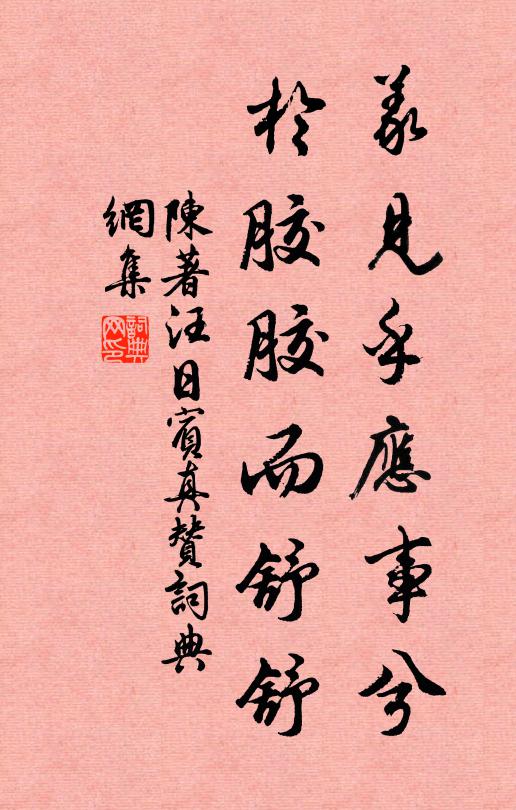 義見乎應事兮
於膠膠而舒舒
陳著汪日賓真贊詞典
網集
詞典
网印